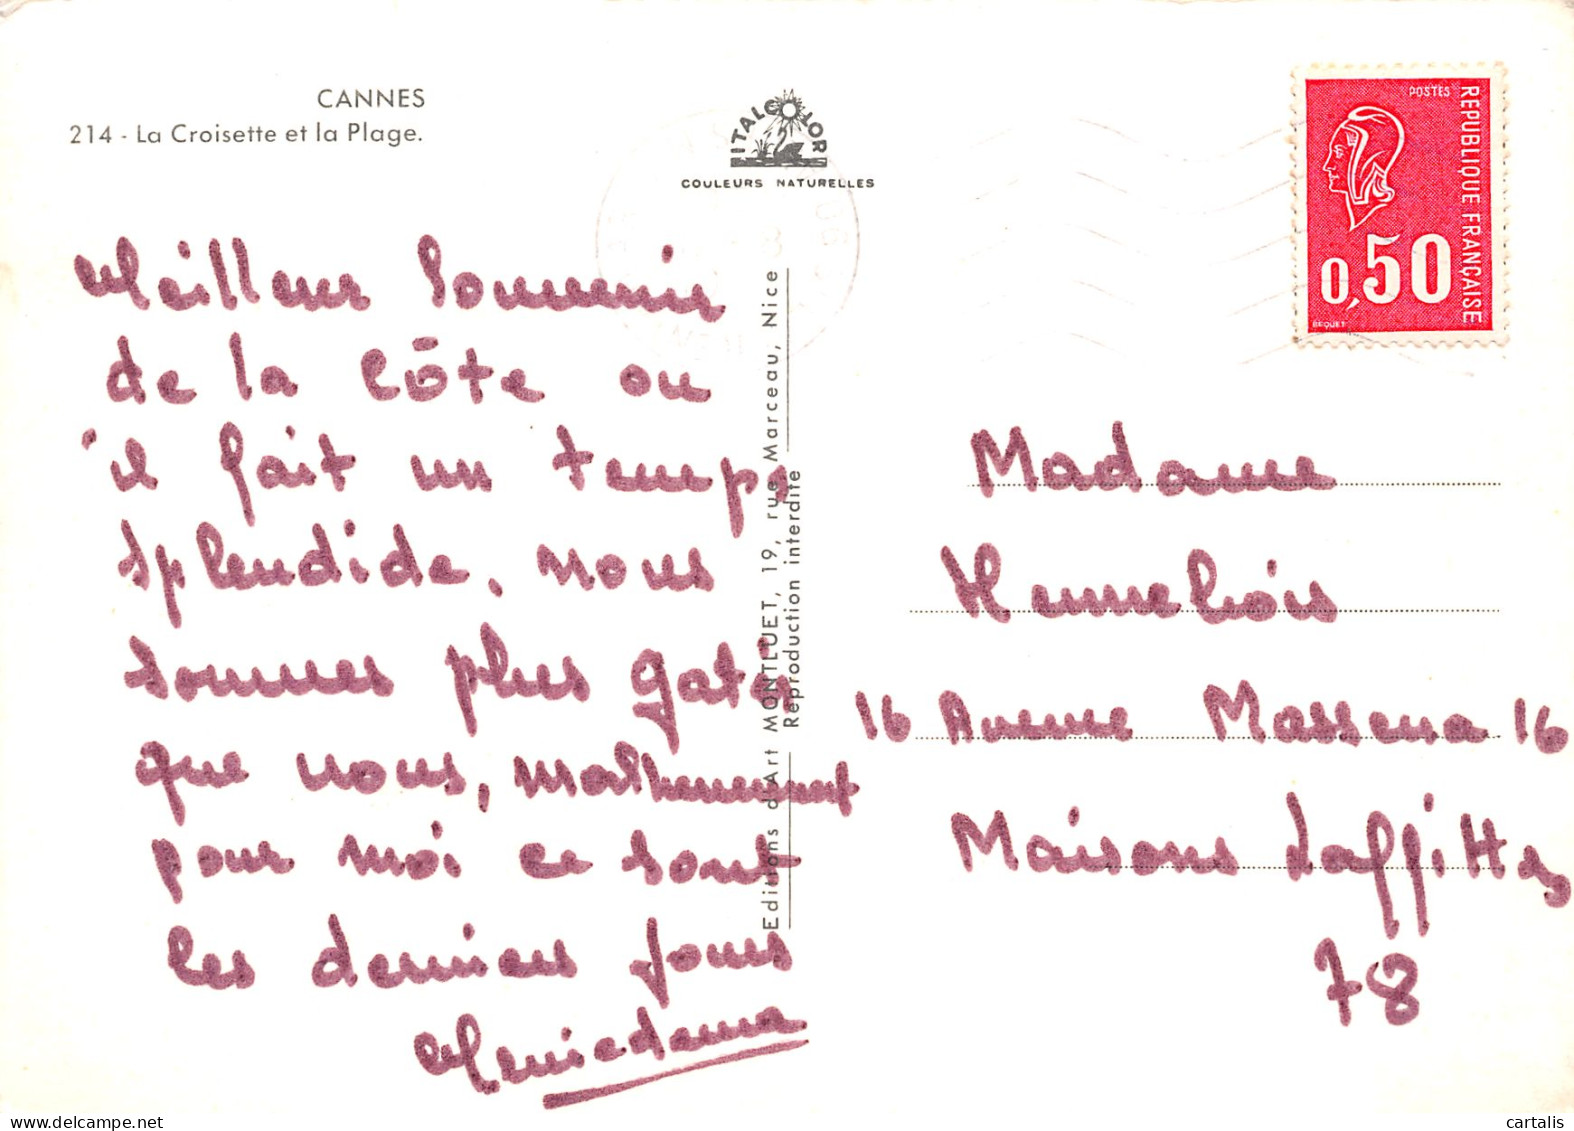 CANNES
214 - La Croisette et la Plage.
ITALCOLOR
COULEURS NATURELLES
POSTES
REPUBLIQUE FRANÇAISE
0,50
BEQUET
Meilleur Souvenir
de la Côte ou
il fait un temps
splendide, nous
sommes plus gatés
que vous, malheureusement
pour moi ce sont
les derniers jours
Editions d'Art MONTLUET, 19, rue Marceau, Nice
Reproduction interdite
Madame
16 Avenue Massena 16
Maisons Laffitte
78
cartalis
delcampe.net